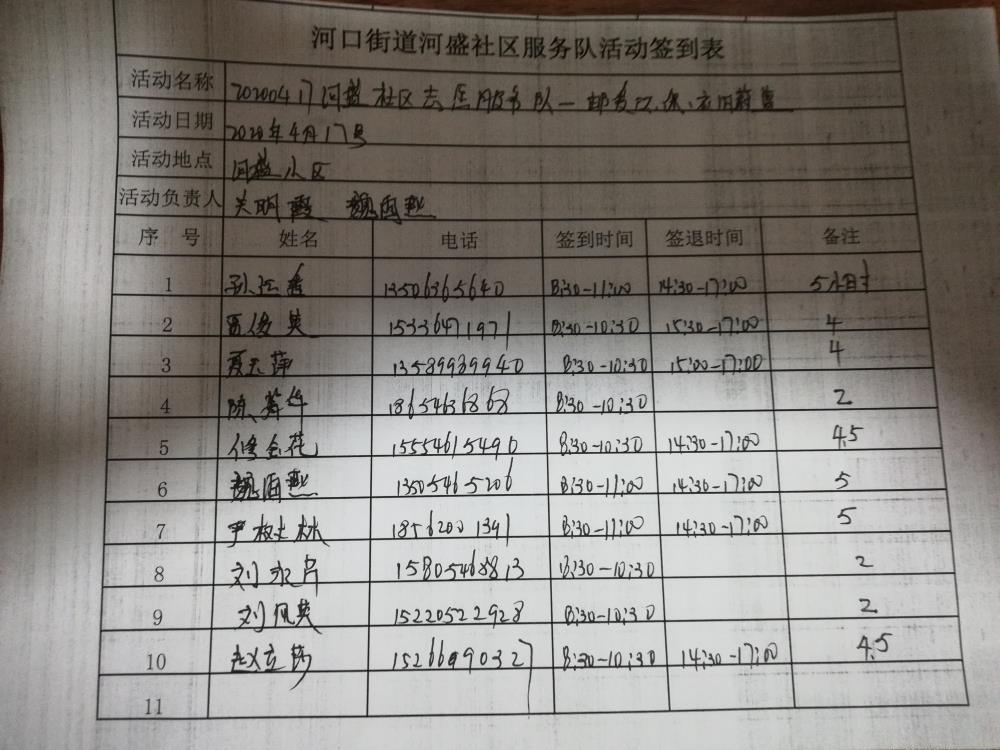 河口街道河盛社区服务队活动签到表
活动名称 20200417河盛社区志愿服务队一
活动日期 2020年4月17号
活动地点 河盛小区
活动负责人 关明霞 魏海燕
序 号 姓名 电话 签到时间 签退时间 备注
1 13506365640 8:30-11:00 14:30-17:00 5小时
2 贾俊英 15336471971 8:30-10:30 15:30-17:00 4
3 夏玉萍 13589939940 8:30-10:30 15:00-17:00 4
4 18654636868 8:30-10:30 2
5 修金花 15554615490 8:30-10:30 14:30-17:00 4.5
6 魏海燕 13505465206 8:30-11:00 14:30-17:00 5
7 尹桂林 18562001391 8:30-11:00 14:30-17:00 5
8 刘永户 15805468813 8:30-10:30 2
9 刘凤英 15220522928 8:30-10:30 2
10 赵立莎 15266090327 8:30-10:30 14:30-17:00 4.5
11